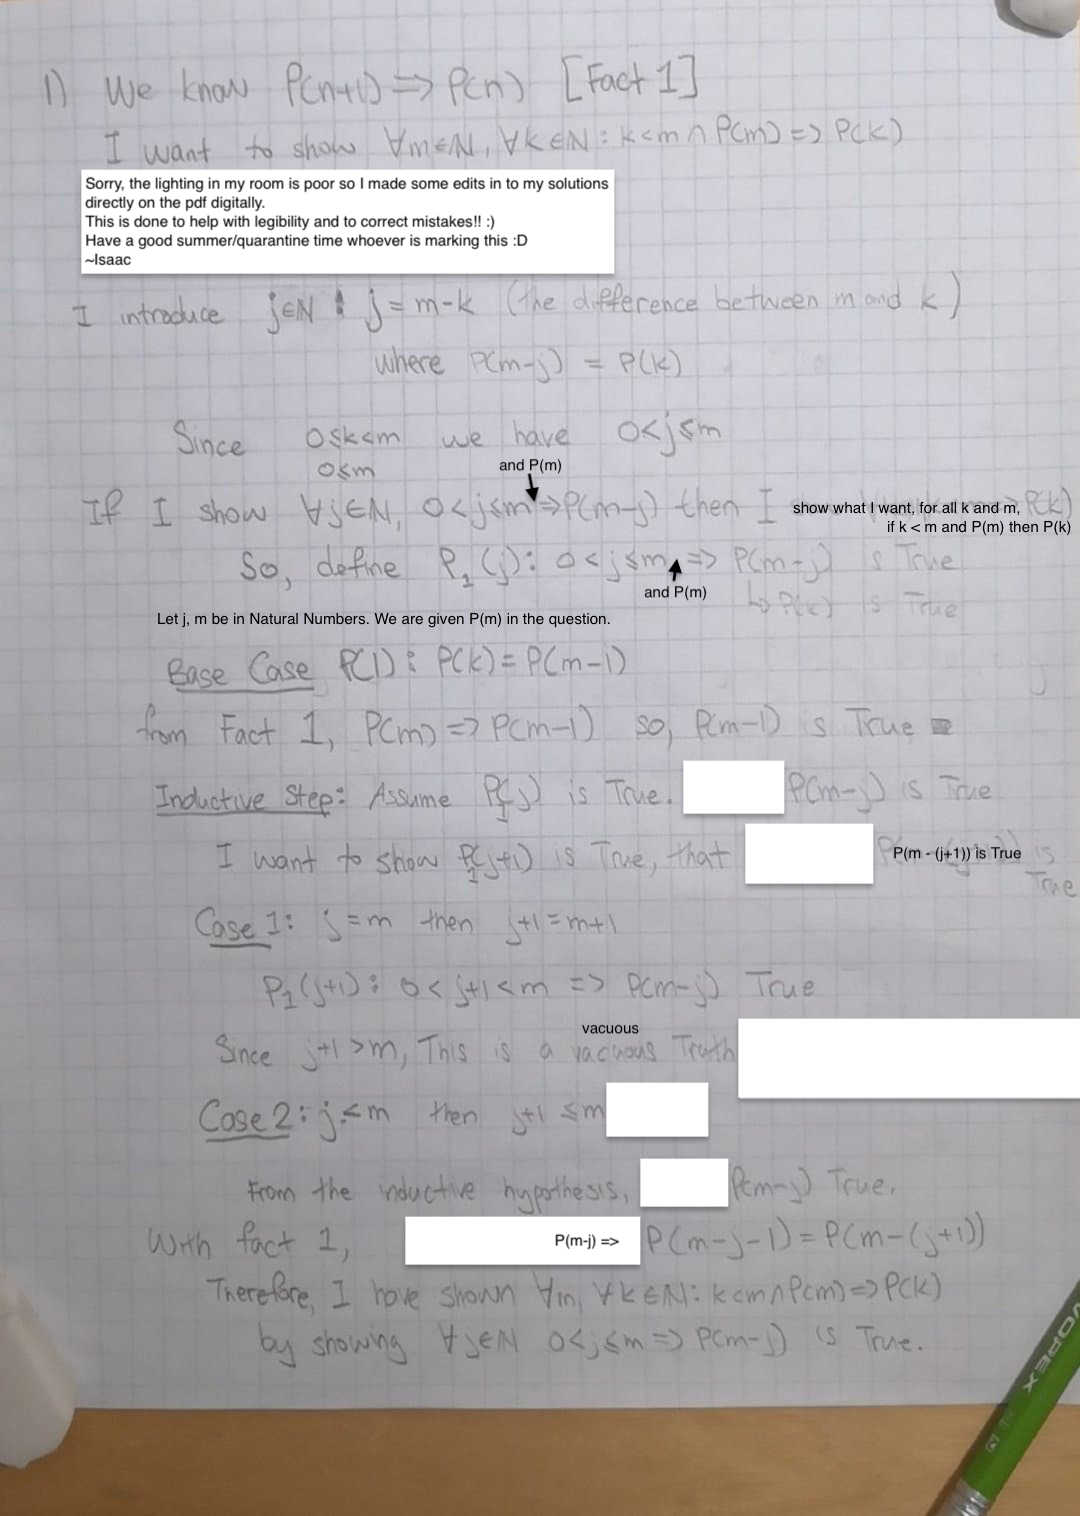 1) We know P(n+1) => P(n) [Fact 1]
I want to show ∀m∈N, ∀k∈N : k<m ∩ P(m) => P(k)
Sorry, the lighting in my room is poor so I made some edits in to my solutions
directly on the pdf digitally.
This is done to help with legibility and to correct mistakes!! :)
Have a good summer/quarantine time whoever is marking this :D
~Isaac
I introduce j∈N : j = m-k (the difference between m and k)
where P(m-j) = P(k)
Since 0≤k<m we have 0<j≤m
0≤m
and P(m)
If I show ∀j∈N, 0<j≤m => P(m-j) then I show what I want, for all k and m, => P(k)
if k < m and P(m) then P(k)
So, define P₁(j): 0<j≤m => P(m-j) is True
and P(m)
↳ P(k) is True
Let j, m be in Natural Numbers. We are given P(m) in the question.
Base Case P(1): P(k) = P(m-1)
from Fact 1, P(m) => P(m-1) so, P(m-1) is True
Inductive Step: Assume P₁(j) is True. P(m-j) is True
I want to show P₁(j+1) is True, that P(m - (j+1)) is True is
True
Case 1: j=m then j+1=m+1
P₁(j+1): 0<j+1<m => P(m-j) True
vacuous
Since j+1>m, This is a vacuous Truth
Case 2: j<m then j+1 ≤m
From the inductive hypothesis, P(m-j) True.
With fact 1, P(m-j) => P(m-j-1) = P(m-(j+1))
Therefore, I have shown ∀m, ∀k∈N: k<m∩P(m)=>P(k)
by showing ∀j∈N 0<j≤m => P(m-j) is True.
OPEX